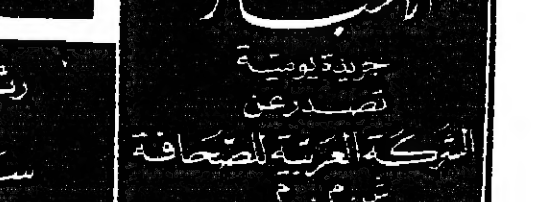 جريدة يومية
تصدر عن
الشركة العربية للصحافة
ش. م. م